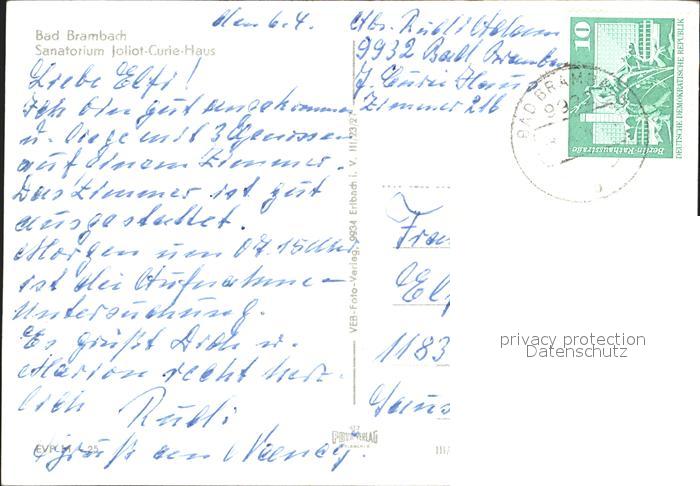 Bad Brambach
Sanatorium Joliot-Curie-Haus
den 6.4.
Abs. Rudi Adam
9932 Bad Bramba
J. Curie Haus
Zimmer 216
Liebe Elfi!
Ich bin gut angekommen
u. liege mit 3 Genossen
auf einem Zimmer.
Das Zimmer ist gut
ausgestattet.
Morgen um 07.15 Uhr
ist die Aufnahme-
untersuchung.
Es grüßt Dich u.
Marion recht herz-
lich Rudi
Gruß an
EVP M -,25
VEB-Foto-Verlag, 9934 Erlbach i. V. III/23/27
10
Berlin-Rathausstraße
DEUTSCHE DEMOKRATISCHE REPUBLIK
BAD BRAMBACH
Frau
Elf
1183
privacy protection
Datenschutz